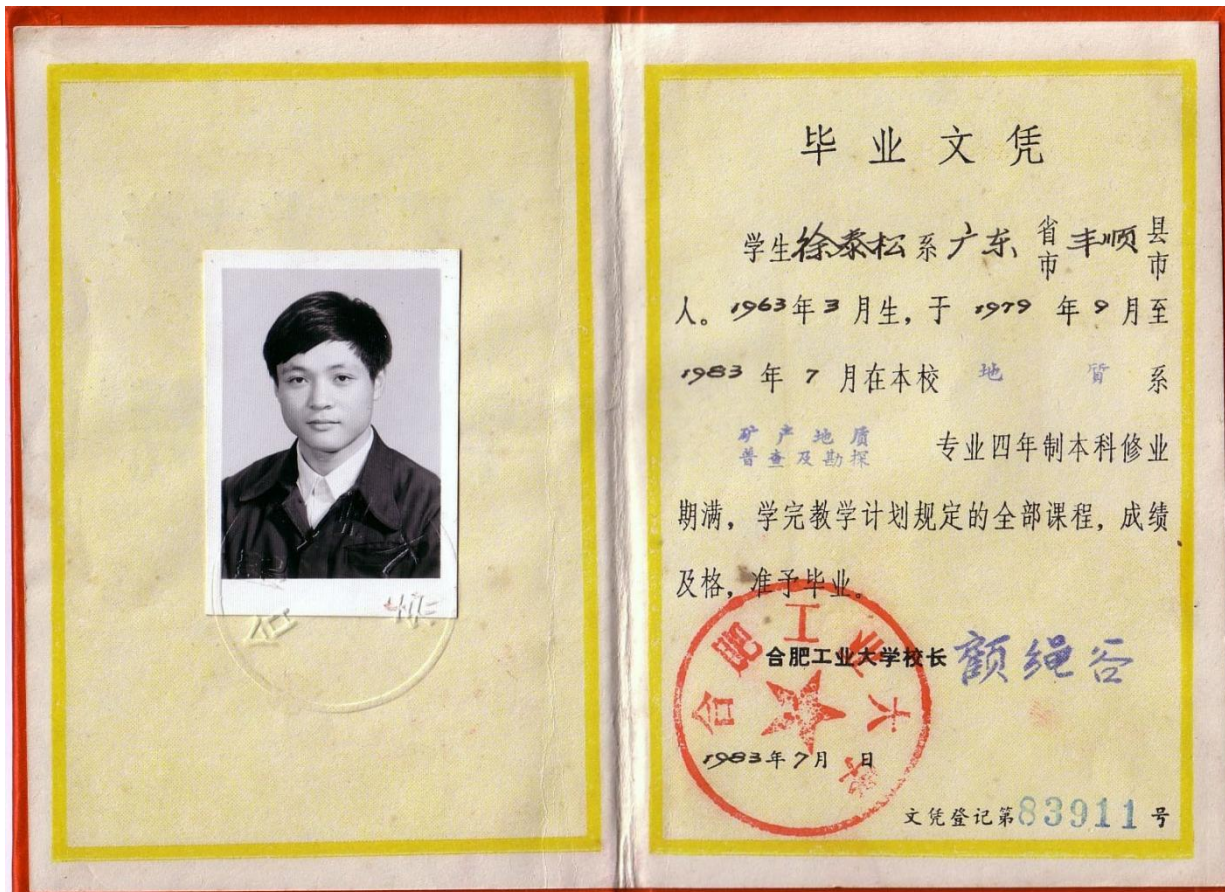 毕业文凭
学生徐泰松系广东省市丰顺县市
人。1963年3月生，于1979年9月至
1983年7月在本校地质系
矿产地质
普查及勘探
专业四年制本科修业
期满，学完教学计划规定的全部课程，成绩
及格，准予毕业。
合肥工业大学校长
合肥工业大学
1983年7月 日
文凭登记第83911号